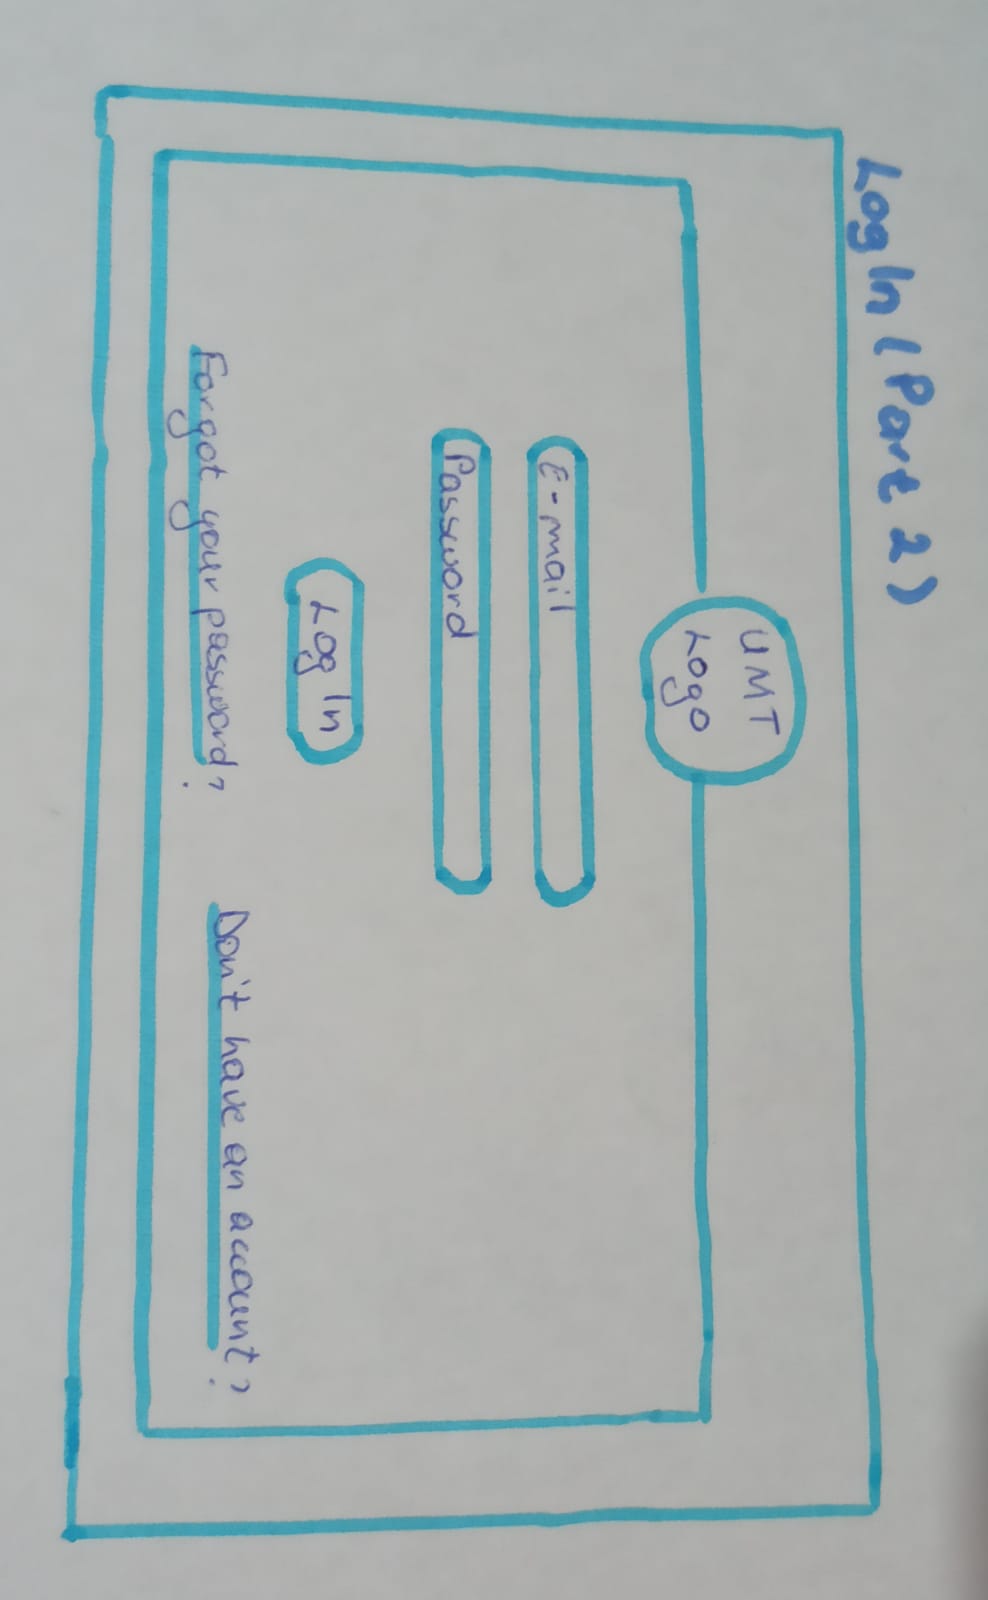 Log In (Part 2)
UMT
Logo
E-mail
Password
Log In
Forgot your password?
Don't have an account?